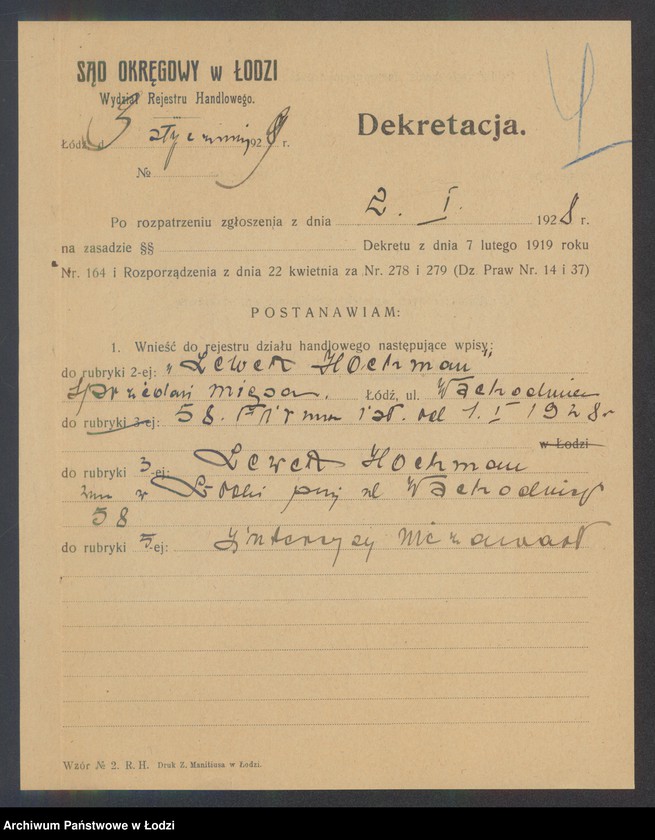 SĄD OKRĘGOWY w ŁODZI
Wydział Rejestru Handlowego.
Łódź, d. 3 stycznia 1928 r.
№
Dekretacja.
Po rozpatrzeniu zgłoszenia z dnia 2. I. 1928 r.
na zasadzie §§ Dekretu z dnia 7 lutego 1919 roku
Nr. 164 i Rozporządzenia z dnia 22 kwietnia za Nr. 278 i 279 (Dz. Praw Nr. 14 i 37)
POSTANAWIAM:
1. Wnieść do rejestru działu handlowego następujące wpisy:
do rubryki 2-ej: „Lewek Hochman"
Sprzedaż mięsa. Łódź, ul. Wschodnia
do rubryki 3-ej: 58. Firma ist. od 1. I 1928 r
w Łodzi
do rubryki 3-ej: Lewek Hochman
zam w Łodzi przy ul Wschodniej
58
do rubryki 5-ej: Intercyzy nie zawarł
Wzór № 2. R. H. Druk Z. Manitiusa w Łodzi.
Archiwum Państwowe w Łodzi